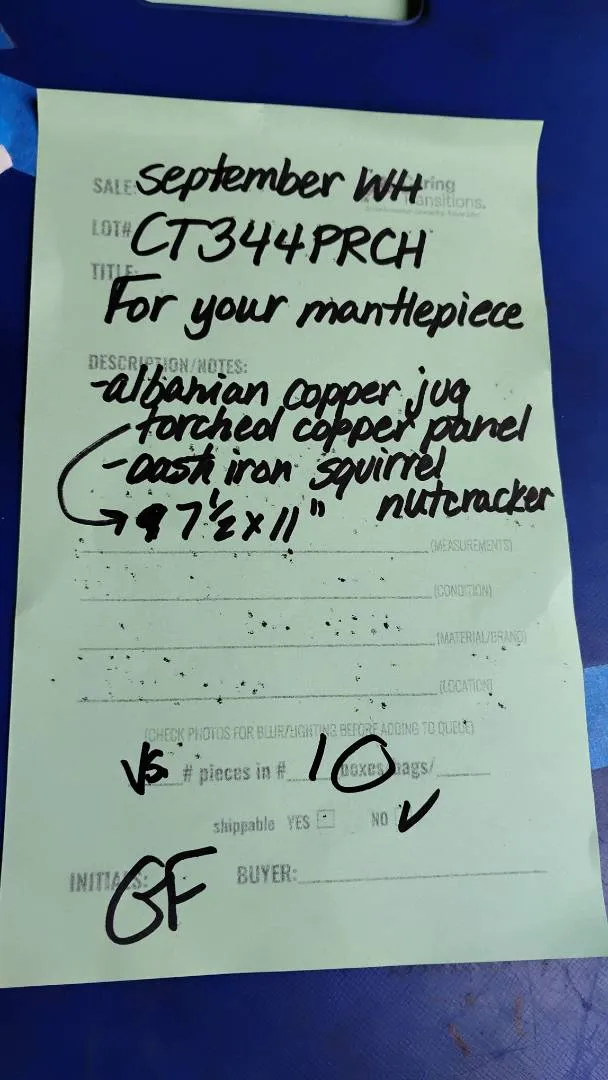 SALE: september WH
Caring Transitions.
LOT# CT344PRCH
TITLE:
For your mantlepiece
DESCRIPTION/NOTES:
-albanian copper jug
-torched copper panel
-cast iron squirrel
nutcracker
7 1/2 x 11"
(MEASUREMENTS)
(CONDITION)
(MATERIAL/BRAND)
(LOCATION)
(CHECK PHOTOS FOR BLUR/LIGHTING BEFORE ADDING TO QUEUE)
VS. # pieces in # 10 boxes/bags/
shippable YES NO ✓
INITIALS: GF BUYER: